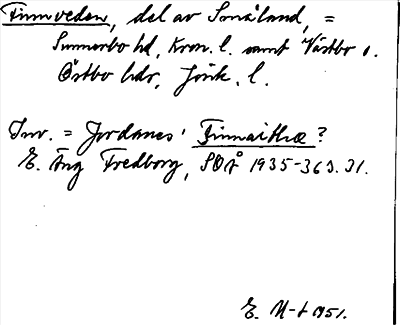 Finnveden, del av Småland, =
Sunnerbo hd, Kron. l. samt Västbo o.
Östbo hdr, Jönk. l.
Inv. = Jordanes' Finnaithæ?
E. Äng Fredborg, SOÅ 1935-36 s. 31.
E. 1951.